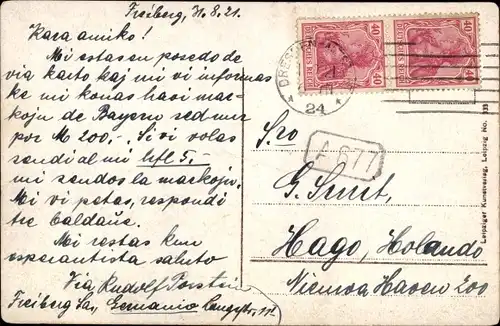 Freiberg, 31.8.21.
Kara amiko!
Mi estas en posedo de
via karto kaj mi vi informas
ke mi konas havi mar-
kojn de Bayern sed nur
por M 200,-. Si vi volas
sendi al mi hfl 5,-
mi sendos la markojn.
Mi vi petas, respondi
tre baldaŭe.
Mi restas kun
esperantista saluto
Via Rudolf
Freiberg Sa, Germanio
DRESDEN
24
40 40
DEUTSCHES REICH
40 40
A 677
S-ro
G. Smit,
Hago, Holando
Nieuwe Haven 200
Leipziger Kunstverlag, Leipzig No. 133